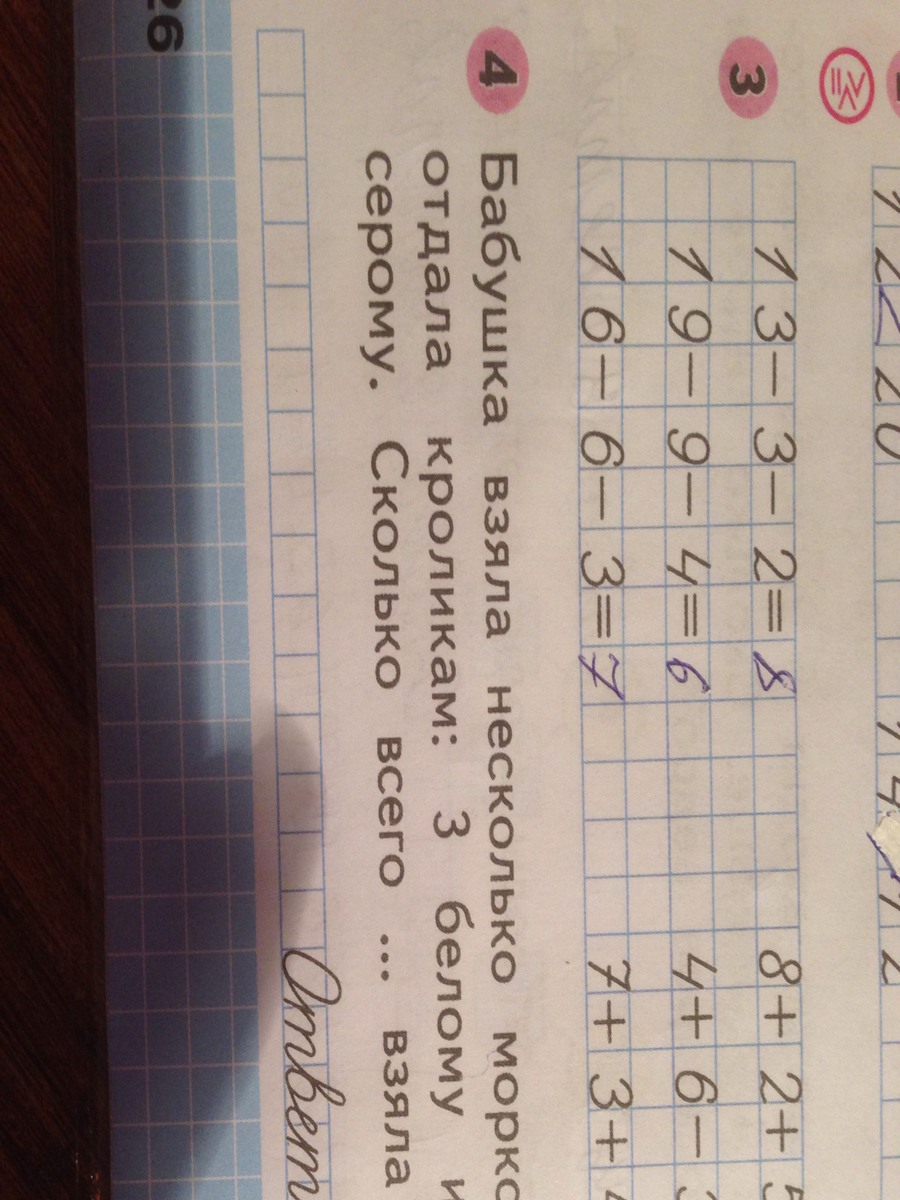 12 < 20 14 12
3
13 − 3 − 2 = 8 8 + 2 +
19 − 9 − 4 = 6 4 + 6 −
16 − 6 − 3 = 7 7 + 3 +
4 Бабушка взяла несколько
отдала кроликам: 3 белому и
серому. Сколько всего ... взяла
Ответ
26